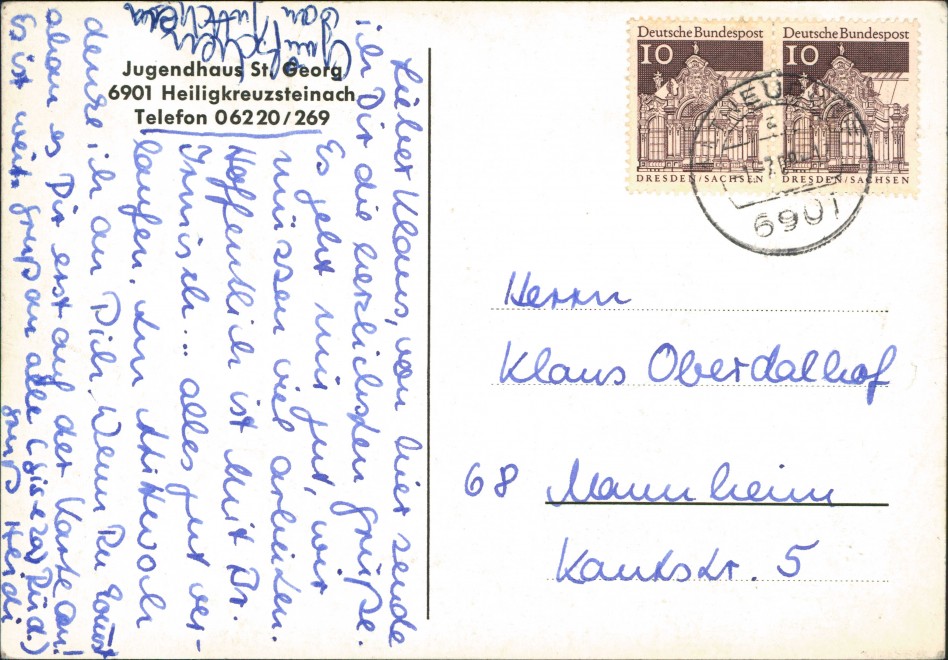 Jugendhaus St. Georg
6901 Heiligkreuzsteinach
Telefon 06220/269
Lieber Klaus, von hier sende
ich Dir die herzlichsten Grüße.
Es geht mir gut, wir
müssen viel arbeiten.
Hoffentlich ist mit Dr.
alles gut ver-
laufen. Am Mittwoch
denke ich an Dich. Wenn Du
es Dir erst auf der Karte an!
Es ist weit. Gruß an alle
Gruß Heidi
Deutsche Bundespost
10
DRESDEN/SACHSEN
Deutsche Bundespost
10
DRESDEN/SACHSEN
6901
Herrn
Klaus Oberdalhof
68 Mannheim
Kantstr. 5